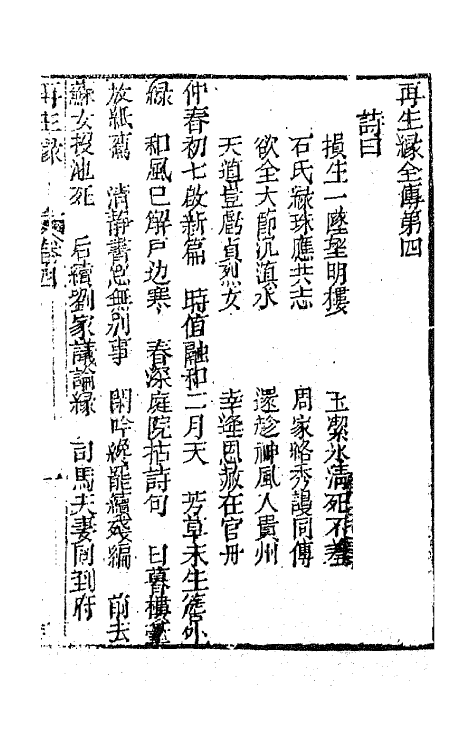 再生縁全傳第四
詩曰
損生一墜望明樓　玉潔氷清死不羞
石氏綠珠應共志　周家臨秀謾同傳
欲全大節沉滇水　還趁神風入貴州
天道豈虧貞烈女　幸逢恩赦在官舟
仲春初七啟新篇　時值融和二月天　芳草未生簷外
緑　和風已解戶边寒　春深庭院拈詩句　日暮樓臺
放紙鳶　清靜書窓無別事　閑吟纔罷續殘編　前去
蘇女投池死　后續劉家議論緣　司馬夫妻同到府
再生緣　卷四　一